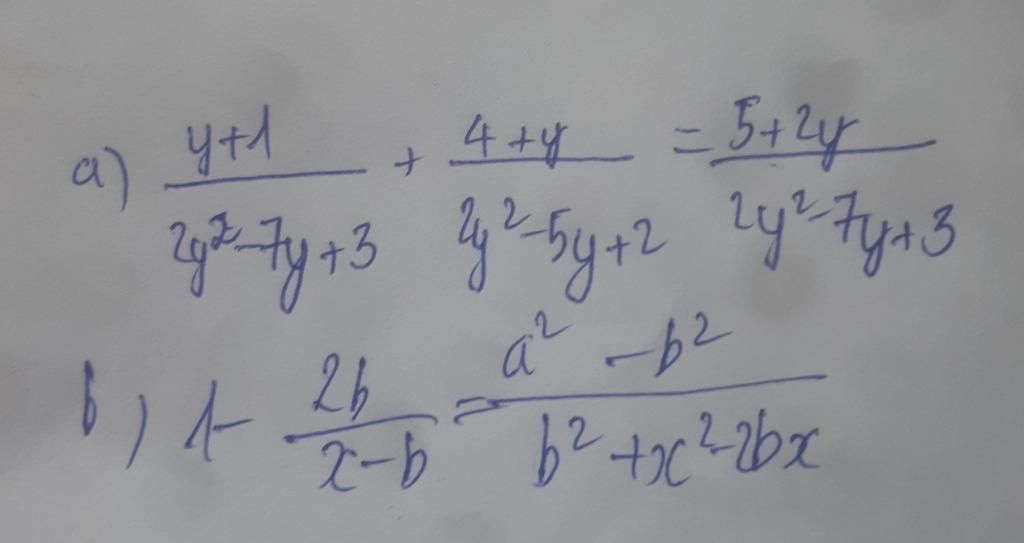 a) \frac{y+1}{2y^2-7y+3} + \frac{4+y}{2y^2-5y+2} = \frac{5+2y}{2y^2-7y+3}
b) 1 - \frac{2b}{x-b} = \frac{a^2-b^2}{b^2+x^2-2bx}